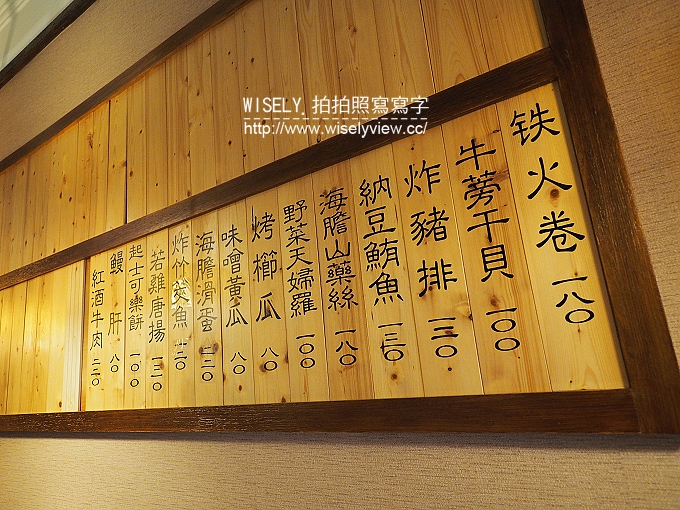 WISELY 拍拍照寫寫字
http://www.wiselyview.cc/
铁火卷 一八〇
牛蒡干貝 一〇〇
炸豬排 一三〇
納豆鮪魚 一三〇
海膽山藥絲 一八〇
野菜天婦羅 一〇〇
烤櫛瓜 八〇
味噌黃瓜 八〇
海膽滑蛋 二二〇
炸竹筴魚
起士可樂餅 一〇〇
若雞唐揚 一二〇
鰻肝 八〇
紅酒牛肉 二二〇